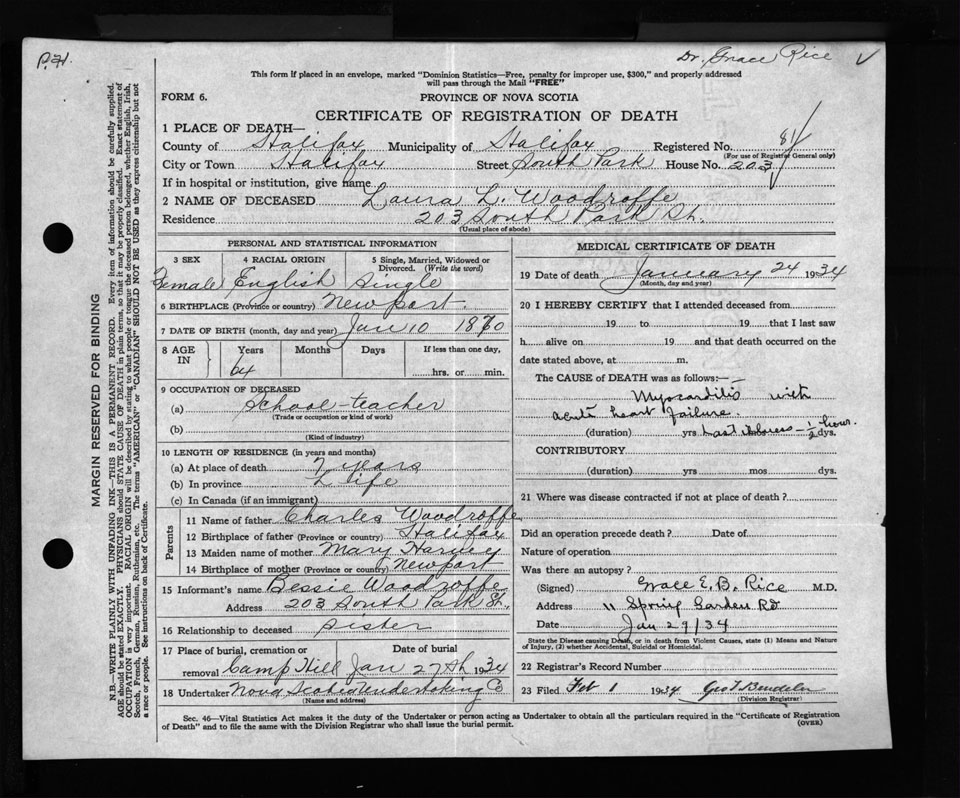 P.H.
Dr. Grace Rice
This form if placed in an envelope, marked "Dominion Statistics—Free, penalty for improper use, $300," and properly addressed
will pass through the Mail "FREE"
FORM 6.
PROVINCE OF NOVA SCOTIA
CERTIFICATE OF REGISTRATION OF DEATH
1 PLACE OF DEATH—
County of Halifax Municipality of Halifax Registered No. 81
(For use of Registrar General only)
City or Town Halifax Street South Park House No. 203
If in hospital or institution, give name
2 NAME OF DECEASED Laura L. Woodroffe
Residence 203 South Park St.
(Usual place of abode)
PERSONAL AND STATISTICAL INFORMATION
3 SEX 4 RACIAL ORIGIN 5 Single, Married, Widowed or Divorced. (Write the word)
Female English Single
6 BIRTHPLACE (Province or country) Newport.
7 DATE OF BIRTH (month, day and year) Jan 10 1870
8 AGE IN Years Months Days If less than one day,
64 hrs. or min.
9 OCCUPATION OF DECEASED
(a) School-teacher
(Trade or occupation or kind of work)
(b)
(Kind of industry)
10 LENGTH OF RESIDENCE (in years and months)
(a) At place of death 7 years
(b) In province Life
(c) In Canada (if an immigrant)
Parents
11 Name of father Charles Woodroffe
12 Birthplace of father (Province or country) Halifax
13 Maiden name of mother Mary Harvey
14 Birthplace of mother (Province or country) Newport
15 Informant's name Bessie Woodroffe
Address 203 South Park St.
16 Relationship to deceased Sister
17 Place of burial, cremation or removal Date of burial
Camp Hill Jan 27th 1934
18 Undertaker Nova Scotia Undertaking Co
(Name and address)
MEDICAL CERTIFICATE OF DEATH
19 Date of death January 24 1934
(Month, day and year)
20 I HEREBY CERTIFY that I attended deceased from
19 to 19 that I last saw
h alive on 19 and that death occurred on the
date stated above, at m.
The CAUSE OF DEATH was as follows:—
Myocarditis with
acute heart failure.
(duration) yrs Last illness - 1/2 hour. dys.
CONTRIBUTORY
(duration) yrs mos dys.
21 Where was disease contracted if not at place of death?
Did an operation precede death? Date of
Nature of operation
Was there an autopsy?
(Signed) Grace E. B. Rice M.D.
Address 11 Spring Garden Rd
Date Jan 29/34
State the Disease causing Death, or in death from Violent Causes, state (1) Means and Nature
of Injury, (2) whether Accidental, Suicidal or Homicidal.
22 Registrar's Record Number
23 Filed Feb 1 1934
(Division Registrar)
Sec. 46—Vital Statistics Act makes it the duty of the Undertaker or person acting as Undertaker to obtain all the particulars required in the "Certificate of Registration
of Death" and to file the same with the Division Registrar who shall issue the burial permit. (OVER)
MARGIN RESERVED FOR BINDING
N.B.—WRITE PLAINLY WITH UNFADING INK—THIS IS A PERMANENT RECORD. Every item of information should be carefully supplied.
AGE should be stated EXACTLY. PHYSICIANS should STATE CAUSE OF DEATH in plain terms, so that it may be properly classified. Exact statement of
OCCUPATION is very important. RACIAL ORIGIN will be described by stating to what people or tongue the deceased person belonged, whether English, Irish,
Scotch, French, German, Russian, Ruthenian, etc. The terms "AMERICAN" or "CANADIAN" SHOULD NOT BE USED as they express citizenship but not
a race or people. See instructions on back of Certificate.